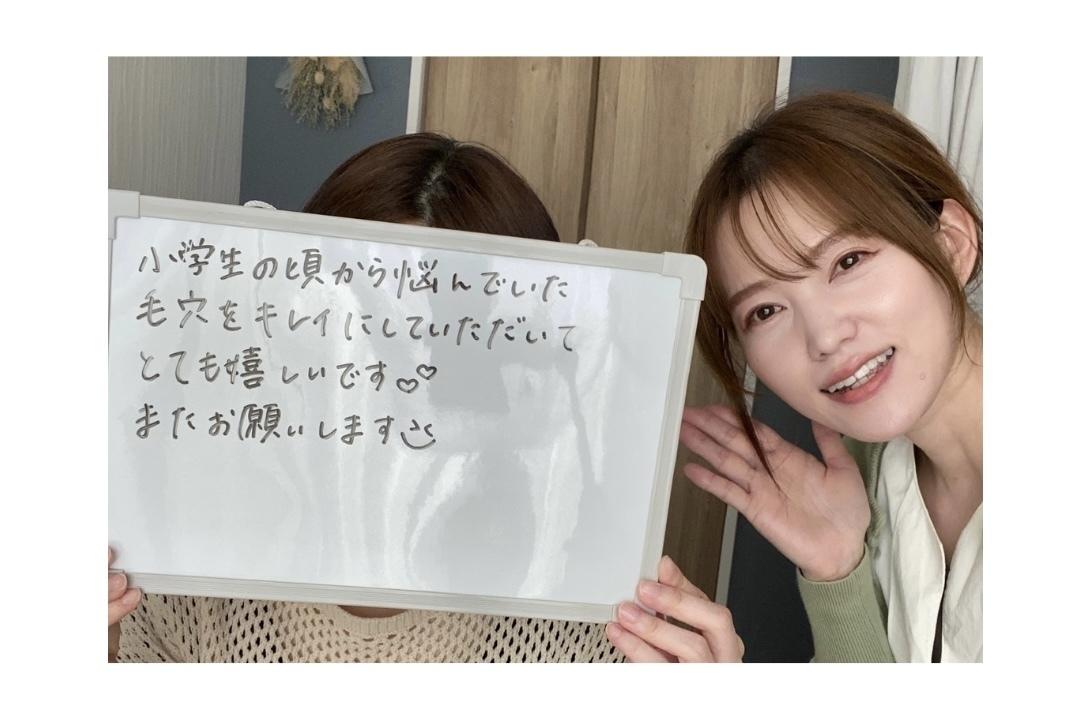 小学生の頃から悩んでいた
毛穴をキレイにしていただいて
とても嬉しいです♡♡
またお願いします